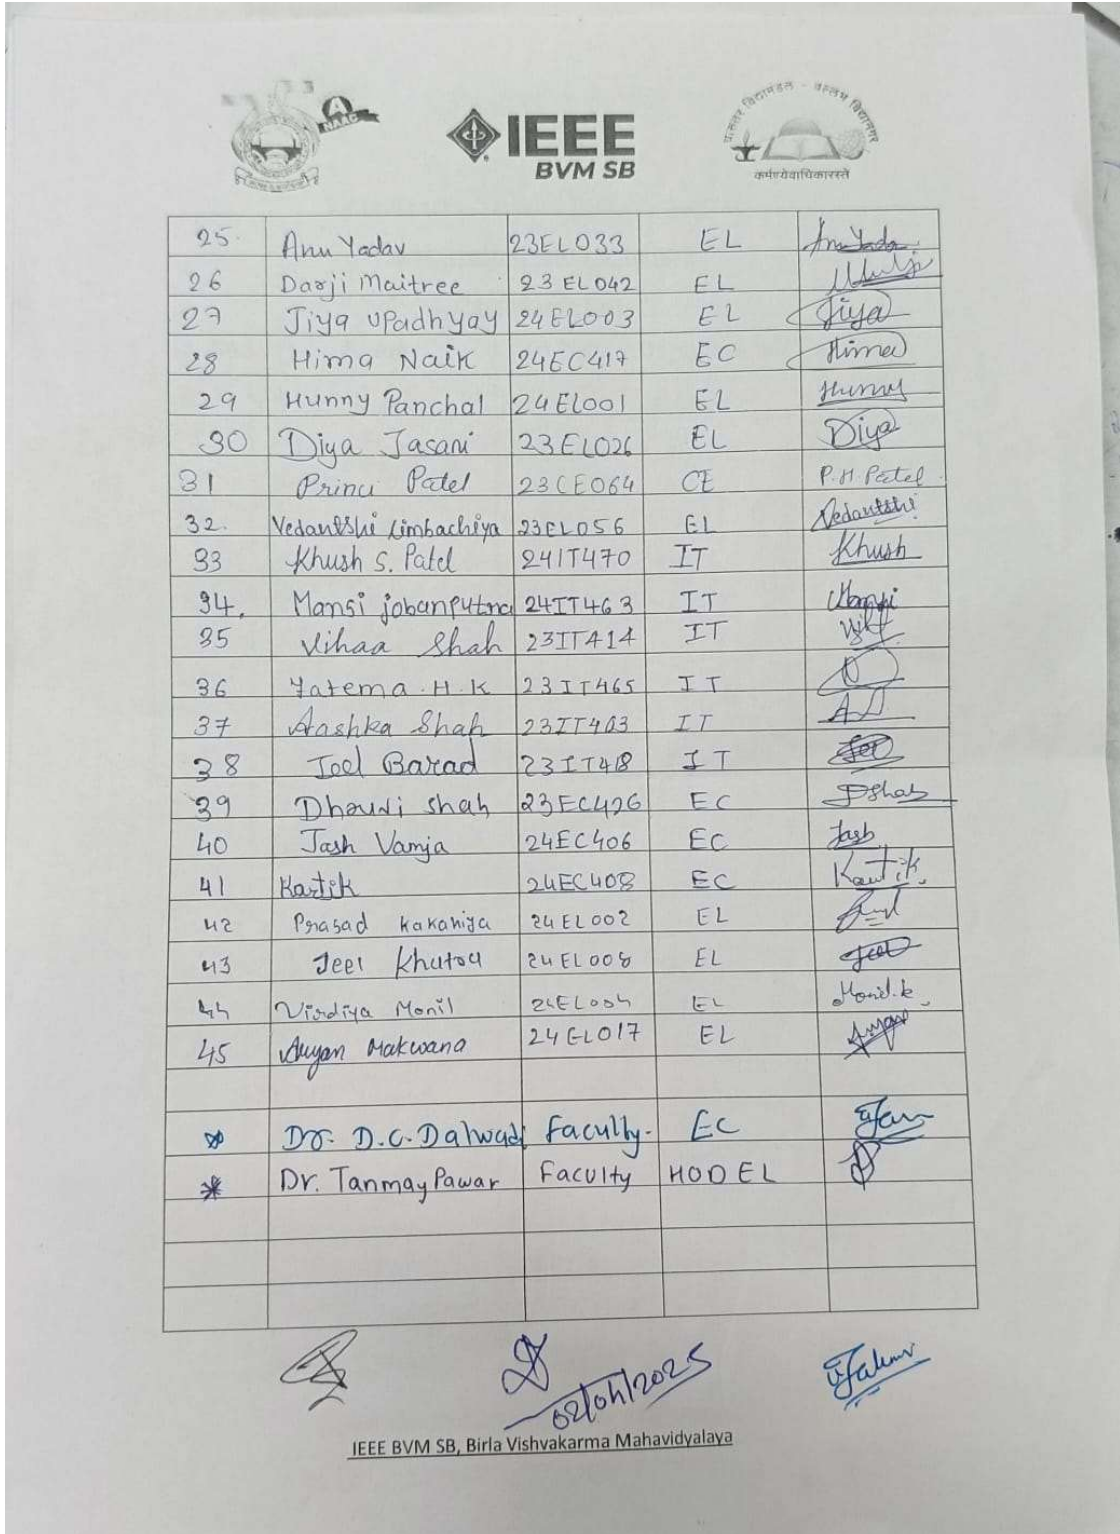 A
NAAC
IEEE
BVM SB
चारुतर विद्यामंडल - वल्लभ विद्यानगर
कर्मण्येवाधिकारस्ते
25. Anu Yadav 23EL033 EL Anu Yadav
26 Darji Maitree 23EL042 EL
27 Jiya Upadhyay 24EL003 EL Jiya
28 Hima Naik 24EC417 EC Hima
29 Hunny Panchal 24EL001 EL Hunny
30 Diya Jasani 23EL026 EL Diya
31 Princi Patel 23CE064 CE P.H.Patel
32. Vedantshi Limbachiya 23EL056 EL Vedantshi
33 Khush S. Patel 24IT470 IT Khush
34. Mansi jobanputra 24IT463 IT Mansi
35 Vihaa Shah 23IT414 IT
36 Fatema.H.K 23IT465 IT
37 Aashka Shah 23IT403 IT
38 Joel Barad 23IT418 IT Joel
39 Dhruvi Shah 23EC426 EC DShah
40 Jash Vamja 24EC406 EC Jash
41 Kartik 24EC408 EC Kartik.
42 Prasad Kakaniya 24EL002 EL
43 Jeel Khatra 24EL008 EL Jeel
44 Virdiya Monil 24EL004 EL Monil.k
45 Aryan Makwana 24EL017 EL Aryan
* Dr. D.C. Dalwadi Faculty. EC
* Dr. Tanmay Pawar Faculty HOD EL
02/04/2025
IEEE BVM SB, Birla Vishvakarma Mahavidyalaya